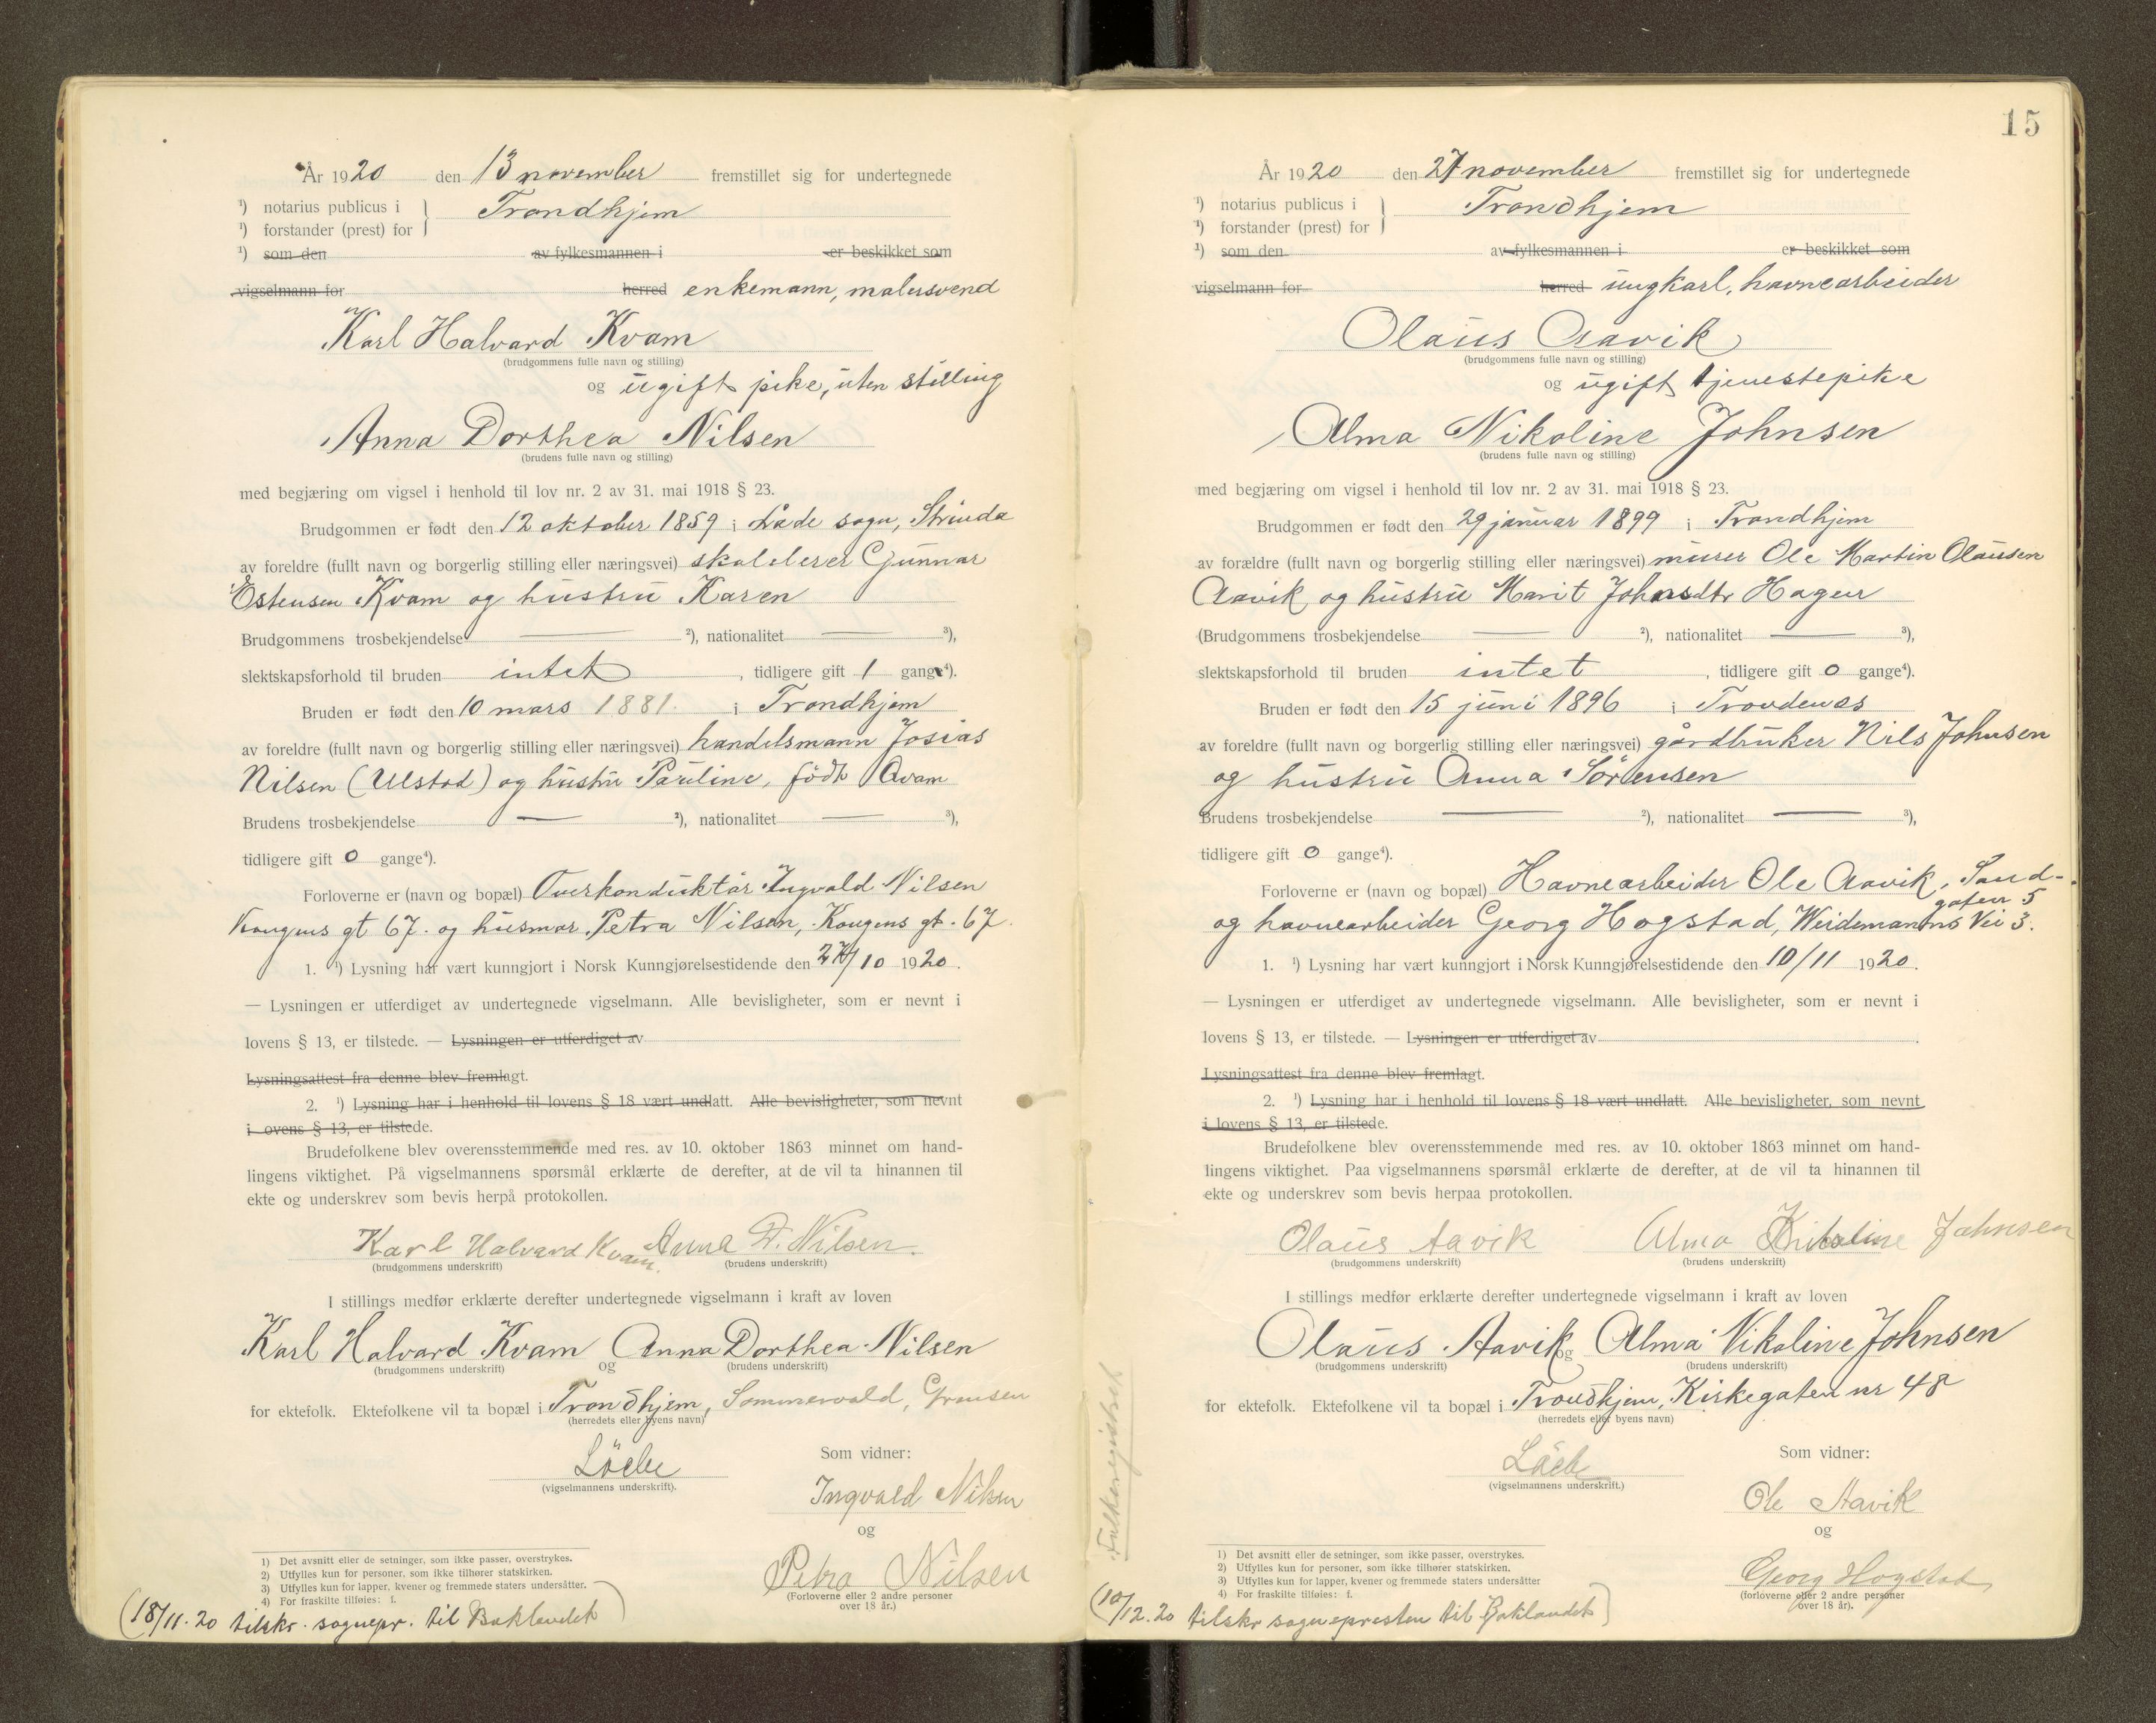 År 1920 den 13 november fremstillet sig for undertegnede
¹) notarius publicus i } Trondhjem
¹) forstander (prest) for
¹) som den av fylkesmannen i er beskikket som
vigselmann for herred enkemann, malersvend
Karl Halvard Kvam
(brudgommens fulle navn og stilling)
og ugift pike, uten stilling
Anna Dorthea Nilsen
(brudens fulle navn og stilling)
med begjæring om vigsel i henhold til lov nr. 2 av 31. mai 1918 § 23.
Brudgommen er født den 12 oktober 1859 i Lade sogn, Strinda
av foreldre (fullt navn og borgerlig stilling eller næringsvei) Gunnar
Estensen Kvam og hustru Karen
Brudgommens trosbekjendelse — ²), nationalitet — ³),
slektskapsforhold til bruden intet, tidligere gift 1 gange⁴).
Bruden er født den 10 mars 1881. i Trondhjem
av foreldre (fullt navn og borgerlig stilling eller næringsvei) handelsmann Josias
Nilsen (Ulstad) og hustru Pauline, født Qvam
Brudens trosbekjendelse — ²), nationalitet — ³),
tidligere gift 0 gange⁴).
Forloverne er (navn og bopæl) Overkonduktør Ingvald Nilsen
Kongens gt 67. og husmor Petra Nilsen, Kongens gt. 67.
1. ¹) Lysning har vært kunngjort i Norsk Kunngjørelsestidende den /10 1920.
— Lysningen er utferdiget av undertegnede vigselmann. Alle bevisligheter, som er nevnt i
lovens § 13, er tilstede. — Lysningen er utferdiget av
Lysningsattest fra denne blev fremlagt.
2. ¹) Lysning har i henhold til lovens § 18 vært undlatt. Alle bevisligheter, som nevnt
i ovens § 13, er tilstede.
Brudefolkene blev overensstemmende med res. av 10. oktober 1863 minnet om hand-
lingens viktighet. På vigselmannens spørsmål erklærte de derefter, at de vil ta hinannen til
ekte og underskrev som bevis herpå protokollen.
Karl Halvard Kvam. Anna D. Nilsen.
(brudgommens underskrift) (brudens underskrift)
I stillings medfør erklærte derefter undertegnede vigselmann i kraft av loven
Karl Halvard Kvam og Anna Dorthea Nilsen
(brudgommens underskrift) (brudens underskrift)
for ektefolk. Ektefolkene vil ta bopæl i Trondhjem,
(herredets eller byens navn)
Som vidner:
(vigselmannens underskrift).
Ingvald Nilsen
og
Petra Nilsen
(Forloverne eller 2 andre personer
over 18 år.)
1) Det avsnitt eller de setninger, som ikke passer, overstrykes.
2) Utfylles kun for personer, som ikke tilhører statskirken.
3) Utfylles kun for lapper, kvener og fremmede staters undersåtter.
4) For fraskilte tilføies: f.
(18/11.20 tilskr. sognepr. til Baklandet)
15
År 1920 den 27 november fremstillet sig for undertegnede
¹) notarius publicus i } Trondhjem
¹) forstander (prest) for
¹) som den av fylkesmannen i er beskikket som
vigselmann for herred ungkarl, havnearbeider
Olaus Aavik
(brudgommens fulle navn og stilling)
og ugift tjenestepike
Alma Nikoline Johnsen
(brudens fulle navn og stilling)
med begjæring om vigsel i henhold til lov nr. 2 av 31. mai 1918 § 23.
Brudgommen er født den 29 januar 1899 i Trondhjem
av forældre (fullt navn og borgerlig stilling eller næringsvei) murer Ole Martin Olaussen
Aavik og hustru Marit Johnsdtr Hagen
(Brudgommens trosbekjendelse — ²), nationalitet — ³),
slektskapsforhold til bruden intet, tidligere gift 0 gange⁴).
Bruden er født den 15 juni 1896 i Trondenes
av foreldre (fullt navn og borgerlig stilling eller næringsvei) gårdbruker Nils Johnsen
og hustru Anna Sørensen
Brudens trosbekjendelse — ²), nationalitet — ³),
tidligere gift 0 gange⁴).
Forloverne er (navn og bopæl) Havnearbeider Ole Aavik, Sand-
gaten 5
og havnearbeider Georg Hogstad, Weidemanns Vei 3.
1. ¹) Lysning har vært kunngjort i Norsk Kunngjørelsestidende den 10/11 1920.
— Lysningen er utferdiget av undertegnede vigselmann. Alle bevisligheter, som er nevnt i
lovens § 13, er tilstede. — Lysningen er utferdiget av
Lysningsattest fra denne blev fremlagt.
2. ¹) Lysning har i henhold til lovens § 18 vært undlatt. Alle bevisligheter, som nevnt
i lovens § 13, er tilstede.
Brudefolkene blev overensstemmende med res. av 10. oktober 1863 minnet om hand-
lingens viktighet. Paa vigselmannens spørsmål erklærte de derefter, at de vil ta hinannen til
ekte og underskrev som bevis herpaa protokollen.
Olaus Aavik Alma Nikoline Johnsen
(brudgommens underskrift) (brudens underskrift)
I stillings medfør erklærte derefter undertegnede vigselmann i kraft av loven
Olaus Aavik og Alma Nikoline Johnsen
(brudgommens underskrift) (brudens underskrift)
for ektefolk. Ektefolkene vil ta bopæl i Trondhjem, Kirkegaten nr 48
(herredets eller byens navn)
Som vidner:
(vigselmannens underskrift.)
Ole Aavik
og
Georg Hogstad
(forloverne eller 2 andre personer
over 18 år).
1) Det avsnitt eller de setninger, som ikke passer, overstrykes.
2) Utfylles kun for personer, som ikke tilhører statskirken.
3) Utfylles kun for lapper, kvener og fremmede staters undersåtter
4) For fraskilte tilføies: f.
(10/12.20 tilskr sognepresten til Baklandet)
Folkeregistret